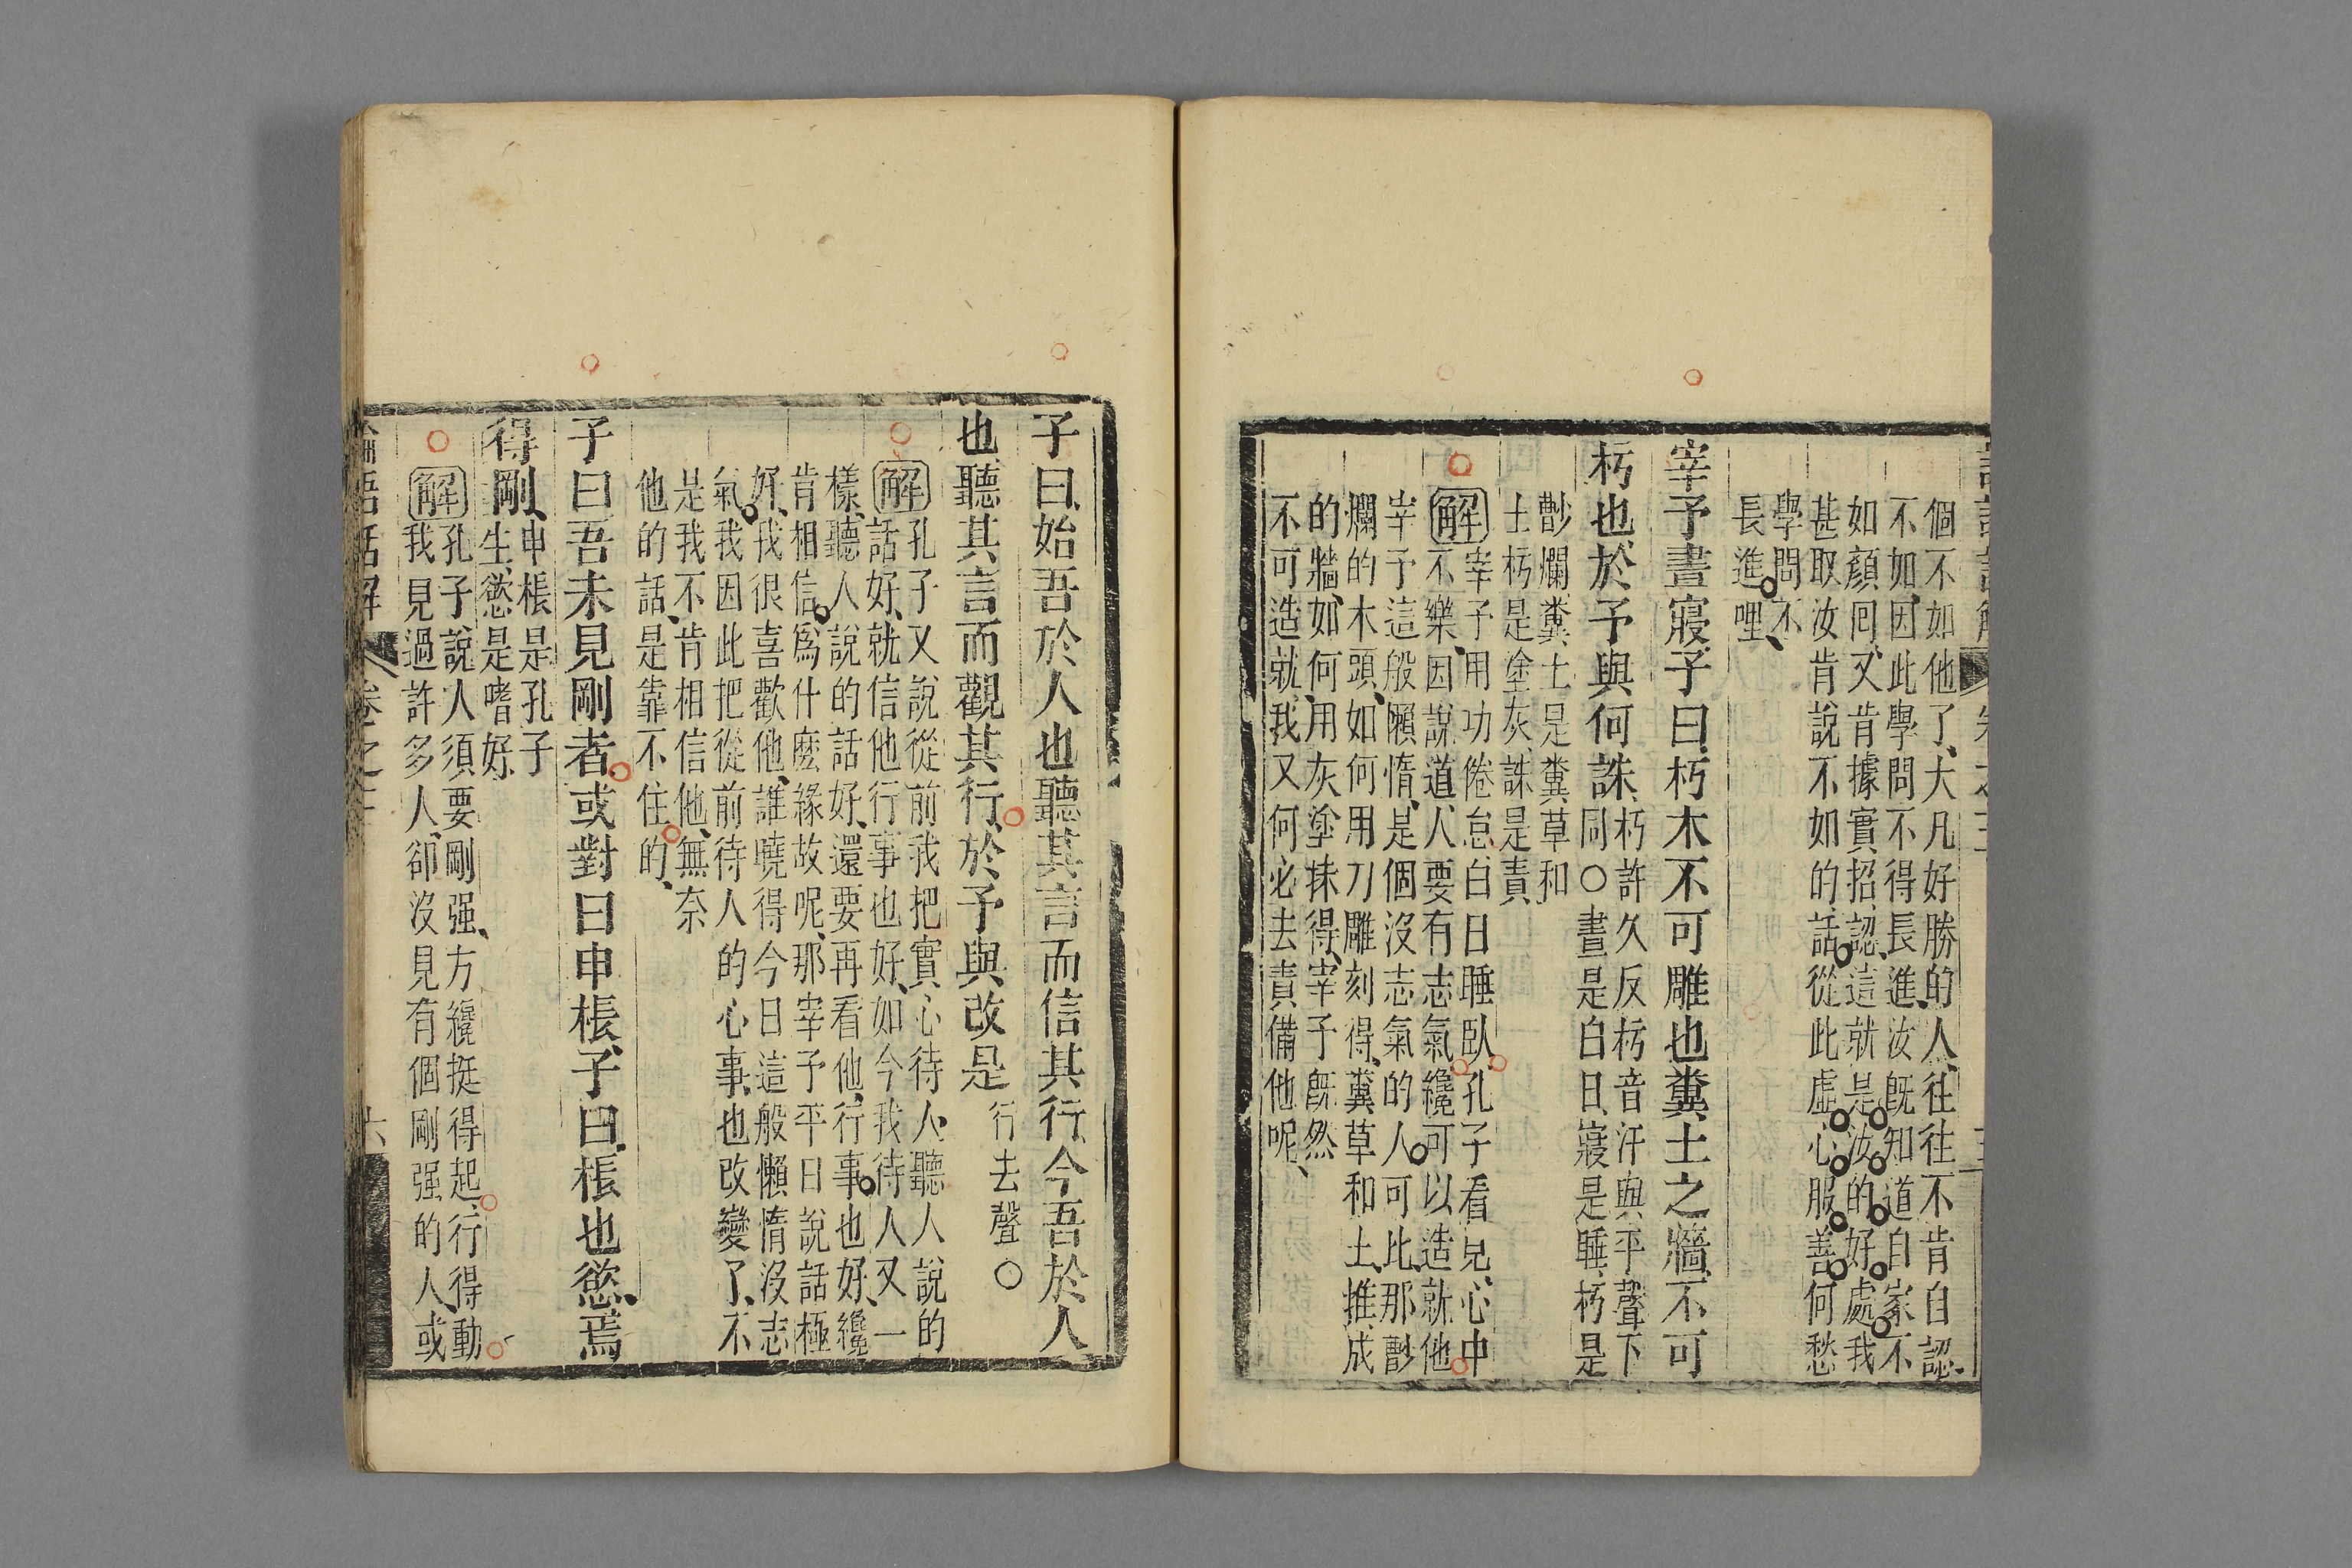 個不如他了、大凡好勝的人、往往不肯自認
不如、因此學問不得長進、汝旣知道自家不
如顏囘、又肯據實招認、這就是汝的好處、我
甚取汝肯說不如的話、從此虛心服善、何愁
學問不
長進哩、
宰予晝寢、子曰、朽木不可雕也、糞土之牆、不可
杇也、於予與何誅、
朽許久反杇音汙與平聲、下
同○晝是白日、寢是睡、朽是
酁爛、糞土是糞草和
土、杇是塗灰、誅是責、
解
宰予用功倦怠、白日睡臥、孔子看見、心中
不樂、因說道、人要有志氣、纔可以造就、他
宰予這般懶惰、是個沒志氣的人、可比那
爛的木頭、如何用刀雕刻得、糞草和土、推成
的牆、如何用灰塗抹得、宰予旣然
不可造就、我又何必去責備他呢、
子曰、始吾於人也、聽其言而信其行、今吾於人
也、聽其言而觀其行、於予與改是
行去聲○
解
孔子又說從前我把實心待人、聽人說的
話好、就信他行事也好、如今我待人又一
樣、聽人說的話好、還要再看他行事也好、纔
肯相信、爲什麽緣故呢、那宰予平日說話極
好、我很喜歡他、誰曉得今日這般懶惰沒志
氣、我因此把從前待人的心事、也改變了、不
是我不肯相信他、無奈
他的話、是靠不住的、
子曰、吾未見剛者、或對曰、申棖、子曰、棖也慾、焉
得剛、
申棖是孔子
生、慾是嗜好、
解
孔子說人須要剛强、方纔挺得起、行得動
我見過許多人、卻沒見有個剛强的人、或
論語話解
卷之三
六